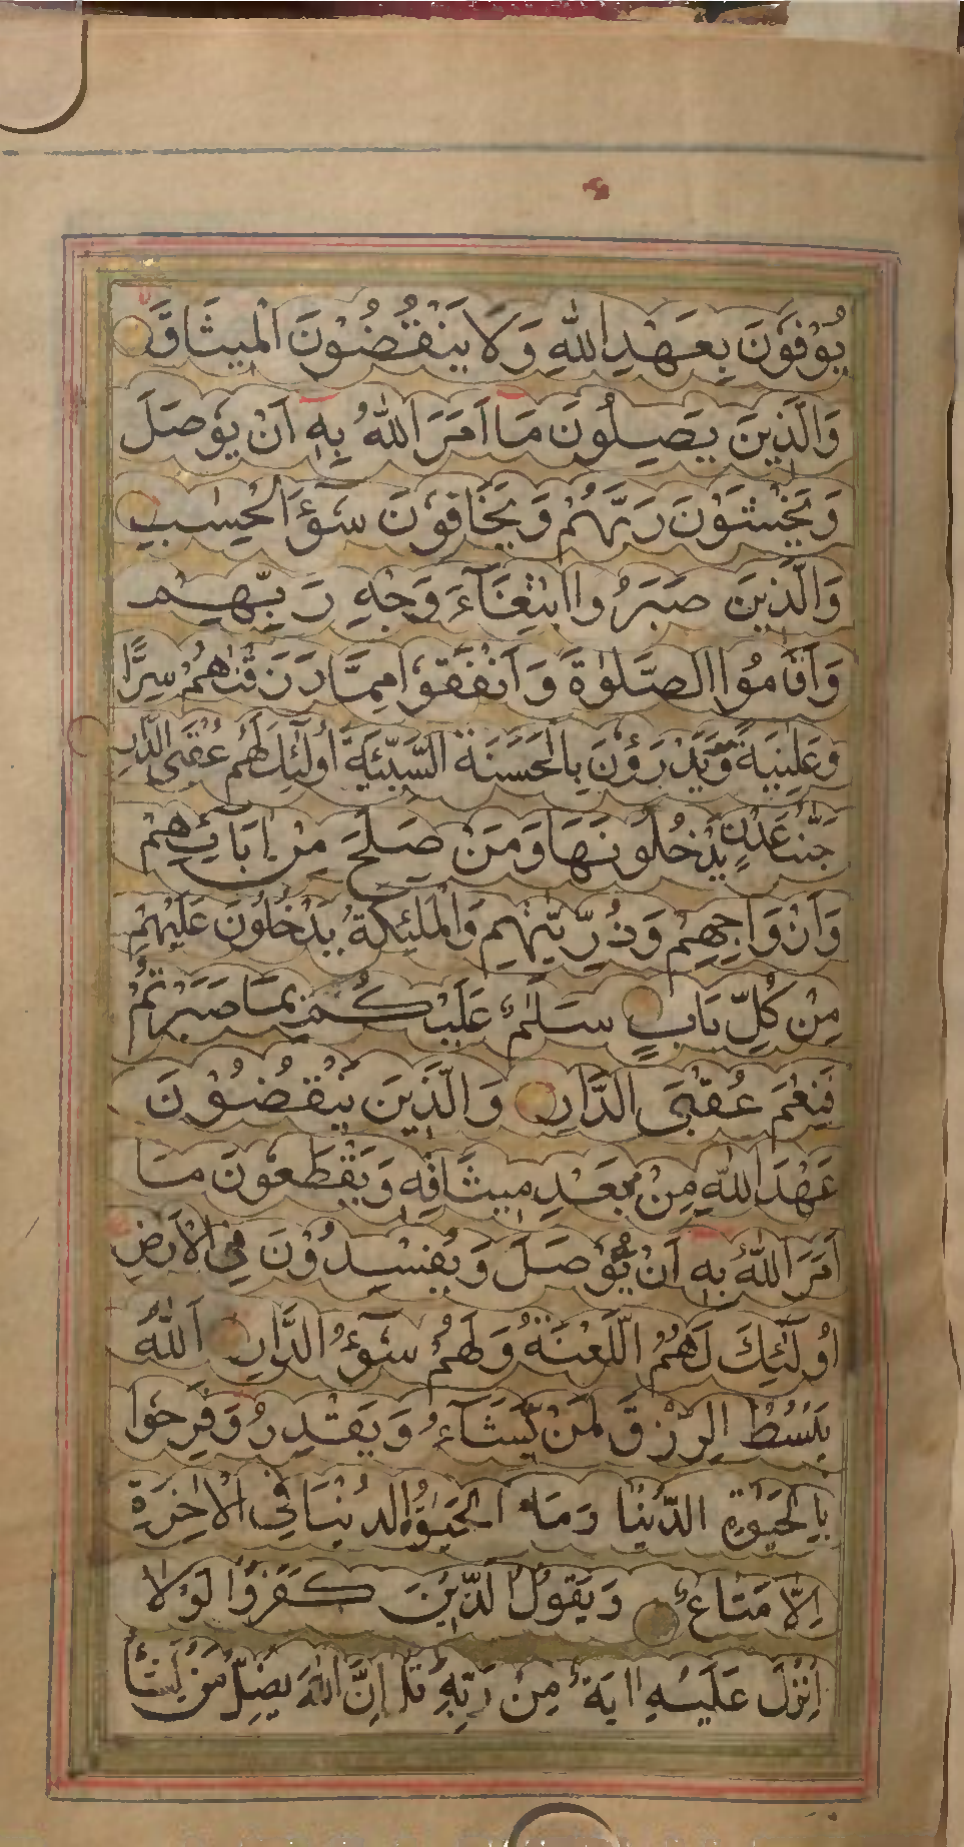 يُوْفُوْنَ بِعَهْدِ اللّٰهِ وَلَا يَنْقُضُوْنَ الْمِيثَاقَ
وَالَّذِينَ يَصِلُونَ مَا اَمَرَ اللّٰهُ بِهٖ اَنْ يُوْصَلَ
وَيَخْشَوْنَ رَبَّهُمْ وَيَخَافُونَ سُوْٓءَ الْحِسَابِ
وَالَّذِينَ صَبَرُوا ابْتِغَآءَ وَجْهِ رَبِّهِمْ
وَاَقَامُوا الصَّلٰوةَ وَاَنْفَقُوْا مِمَّا رَزَقْنٰهُمْ سِرًّا
وَعَلٰنِيَةً وَّيَدْرَؤُنَ بِالْحَسَنَةِ السَّيِّئَةَ اُولٰٓئِكَ لَهُمْ عُقْبَى الدَّارِ
جَنّٰتُ عَدْنٍ يَدْخُلُونَهَا وَمَنْ صَلَحَ مِنْ اٰبَآئِهِمْ
وَاَزْوَاجِهِمْ وَذُرِّيّٰتِهِمْ وَالْمَلٰٓئِكَةُ يَدْخُلُونَ عَلَيْهِمْ
مِنْ كُلِّ بَابٍ سَلٰمٌ عَلَيْكُمْ بِمَا صَبَرْتُمْ
فَنِعْمَ عُقْبَى الدَّارِ وَالَّذِينَ يَنْقُضُوْنَ
عَهْدَ اللّٰهِ مِنْ بَعْدِ مِيثَاقِهٖ وَيَقْطَعُونَ مَا
اَمَرَ اللّٰهُ بِهٖ اَنْ يُّوْصَلَ وَيُفْسِدُوْنَ فِي الْاَرْضِ
اُولٰٓئِكَ لَهُمُ اللَّعْنَةُ وَلَهُمْ سُوْٓءُ الدَّارِ اَللّٰهُ
يَبْسُطُ الرِّزْقَ لِمَنْ يَّشَآءُ وَيَقْدِرُ وَفَرِحُوا
بِالْحَيٰوةِ الدُّنْيَا وَمَا الْحَيٰوةُ الدُنْيَا فِي الْاٰخِرَةِ
اِلَّا مَتَاعٌ وَيَقُولُ الَّذِيْنَ كَفَرُوْا لَوْلَا
اُنْزِلَ عَلَيْهِ اٰيَةٌ مِنْ رَبِّهٖ قُلْ اِنَّ اللّٰهَ يُضِلُّ مَنْ يَشَآءُ